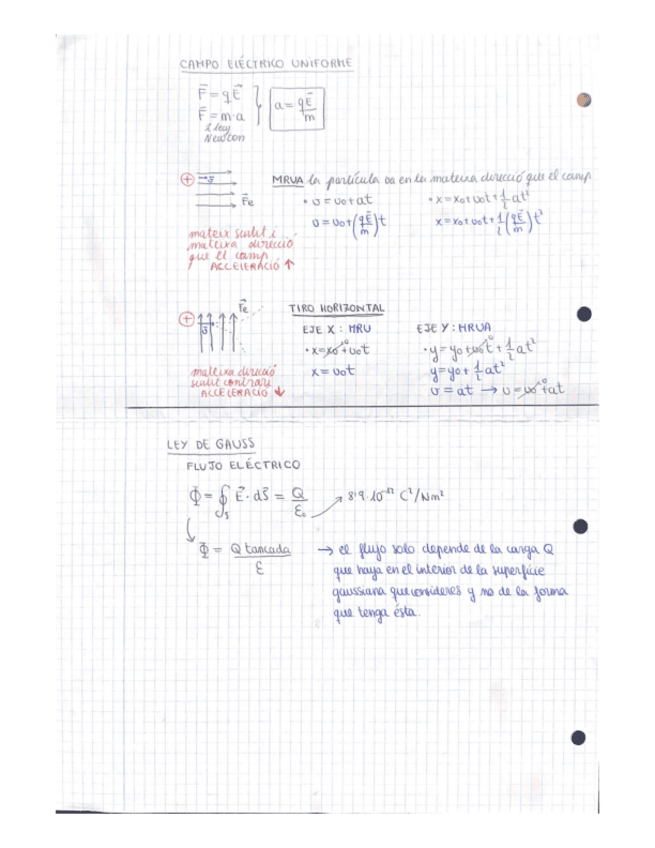 CAMPO ELÉCTRICO UNIFORME
F⃗ = qE⃗
F⃗ = m·a
2 ley
Newton
a = qE⃗/m
+
v⃗
F⃗e
MRUA la partícula va en la mateixa direcció que el camp
• v = v₀ + at
• x = x₀ + v₀t + 1/2 at²
v = v₀ + (qE⃗/m)t
x = x₀ + v₀t + 1/2 (qE⃗/m)t²
mateix sentit i
mateixa direcció
que el camp
ACCELERACIÓ ↑
+
v⃗
F⃗e
TIRO HORIZONTAL
EJE X : MRU
EJE Y : MRUA
• x = x₀⁰ + v₀t
• y = y₀ + v₀t⁰ + 1/2 at²
x = v₀t
y = y₀ + 1/2 at²
v = at → v = v₀⁰ + at
mateixa direcció
sentit contrari
ACCELERACIÓ ↓
LEY DE GAUSS
FLUJO ELÉCTRICO
Φ = ∮s E⃗ · dS⃗ = Q/ε₀ → 8'9·10⁻¹² C²/Nm²
Φ = Q tancada/ε
→ el flujo solo depende de la carga Q
que haya en el interior de la superfície
gaussiana que consideres y no de la forma
que tenga ésta.